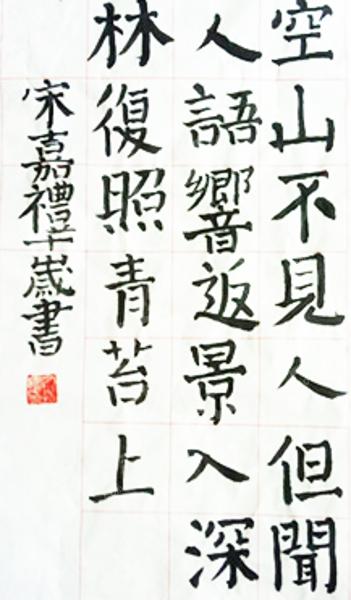 空山不見人但聞
人語響返景入深
林復照青苔上
宋嘉禮十歲書